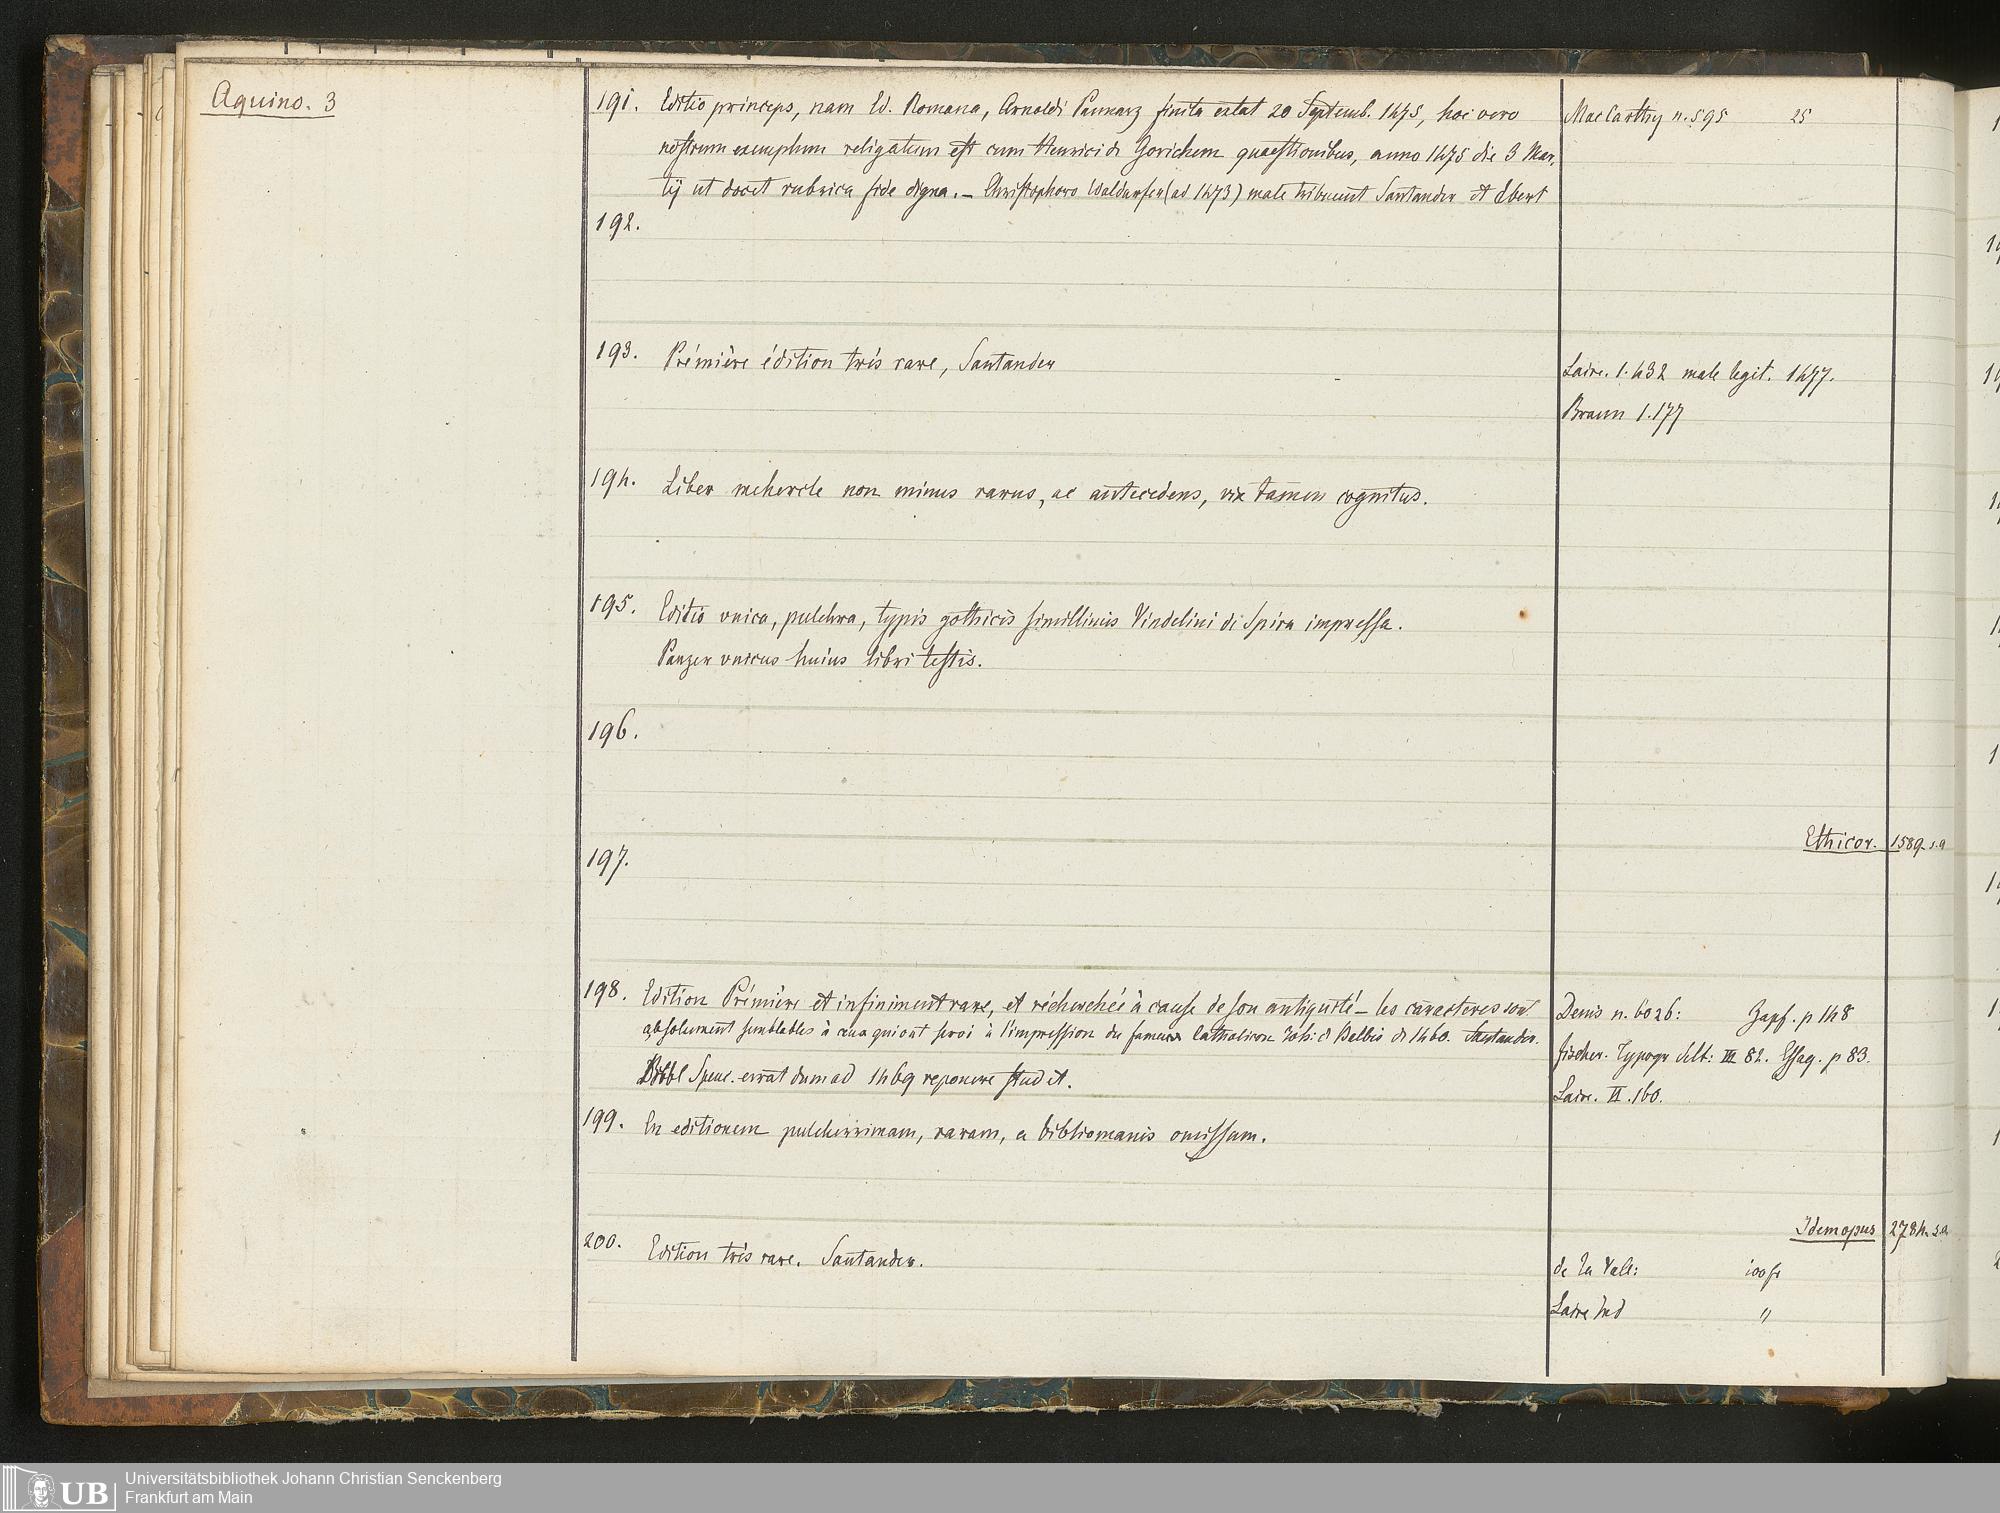 Aquino. 3
191. Editio princeps, nam Ed. Romana, Arnoldi Pannarz finita extat 20 Septemb. 1475, hoc vero Mac Carthy n. 595 25
nostrum exemplum religatum est cum Henrici de Gorichem quaestionibus, anno 1475 die 3 Mar,
tij ut docet rubrica fide digna. – Christophoro Waldarfer (ad 1473) male tribuunt Santander et Ebert
192.
193. Prémière édition très rare, Santander
Laire. 1. 432 male legit. 1477.
Braun 1. 177
194. Liber mehercle non minus rarus, ac antecedens, vix tamen cognitus.
195. Editio vnica, pulchra, typis gothicis simillimis Vindelini di Spira impressa.
Panzer vnicus huius libri testis.
196.
Ethicor. 1589. s. a
197.
198. Edition Prémière et infiniment rare, et récherchée à cause de son antiquité – les caracteres sont Denis n. 6026: Zapf. p 148
absolument semblables à ceux qui ont servi à l'impression du fameux Catholicon Joh: d Balbis de 1460. Santander. fischer. Typogr Selt: III 82. Essay. p 83.
Bibl Spenc. errat dum ad 1469 reponere studet. Laire. II. 160.
199. En editionem pulcherrimam, raram, a bibliomanis omissam.
Idem opus 2784. s. a.
200. Edition très rare. Santander. de la Vall: 100 fr
Laire Ind "
UB Universitätsbibliothek Johann Christian Senckenberg
Frankfurt am Main